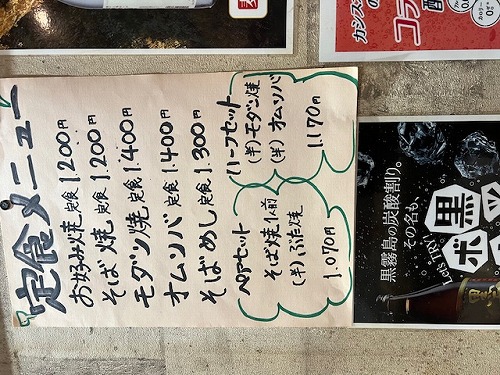 定食メニュー
お好み焼 定食 1.200円
そば焼 定食 1.200円
モダン焼 定食 1.400円
オムソバ 定食 1.400円
そばめし 定食 1.300円
ハーフセット
(半)モダン焼
(半)オムソバ
1.170円
ペアセット
そば焼1人前
(半)ぶた焼
1.070円
黒霧島の炭酸割り。
その名も、
Let's TRY!
黒
ボ
カンス
コラ